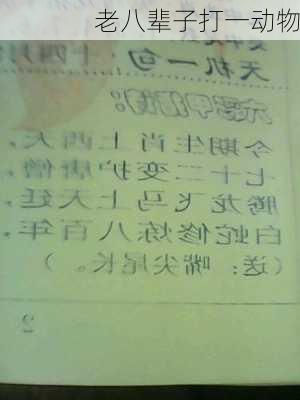 老八辈子打一动物
天机一句
今期生肖上西天，
七十二变护唐僧，
腾龙飞马上天廷，
白蛇修炼八百年，
（送：嘴尖尾长。）
2